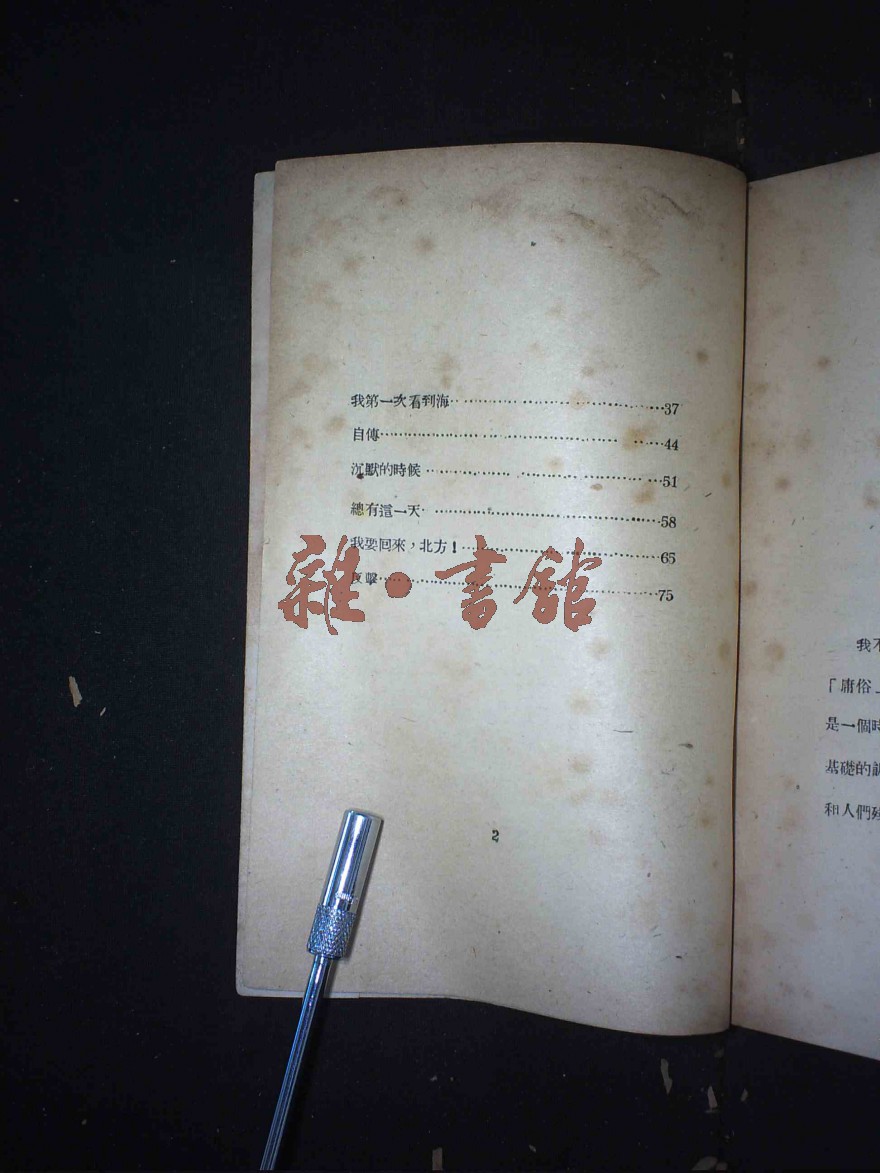 我第一次看到海……………………37
自傳……………………44
沉默的時候……………………51
總有這一天……………………58
我要回來，北方！……………………65
擊……………………75
雜·書館
2
我不
「庸俗
是一個時
基礎的
和人們